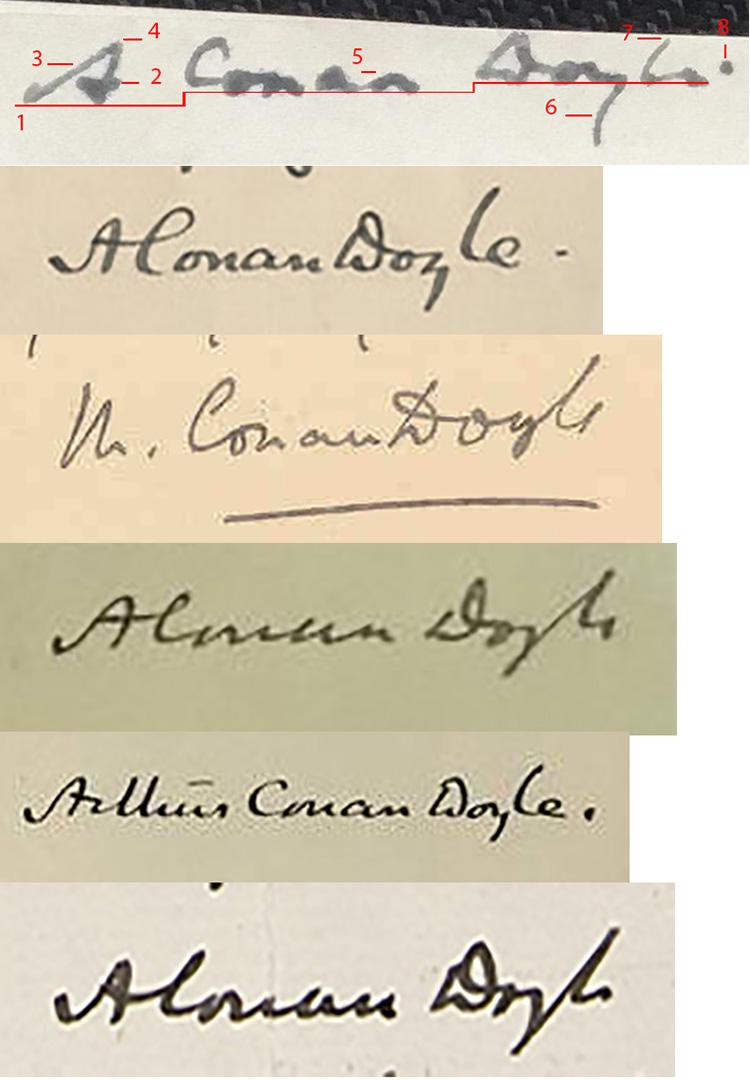 3 4 5 7 8
A Conan Doyle.
2
1 6
A Conan Doyle -
M. Conan Doyle
A Conan Doyle
Arthur Conan Doyle.
A Conan Doyle